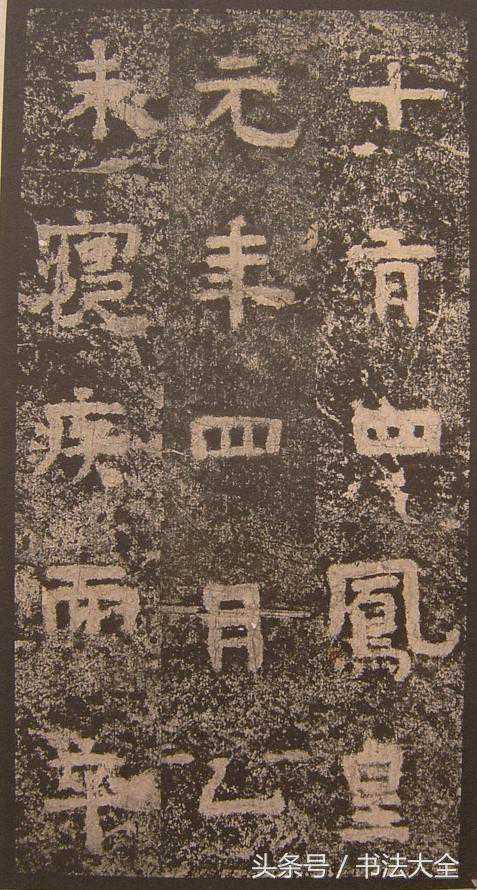 十有四鳳皇
元年四月乙
未寢疾而卒
头条号 / 书法大全